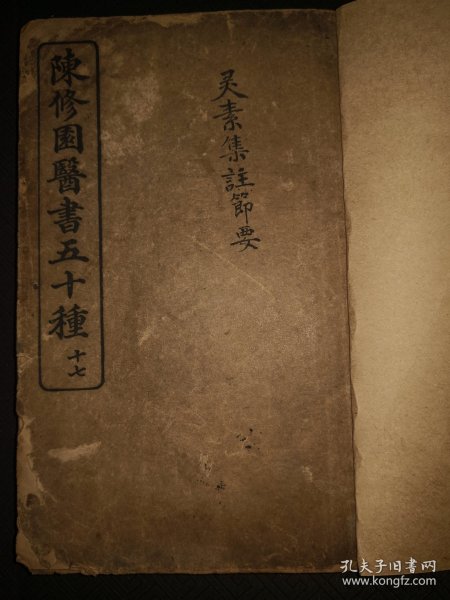 陳修園醫書五十種 十七
灵素集註節要
孔夫子旧书网
www.kongfz.com